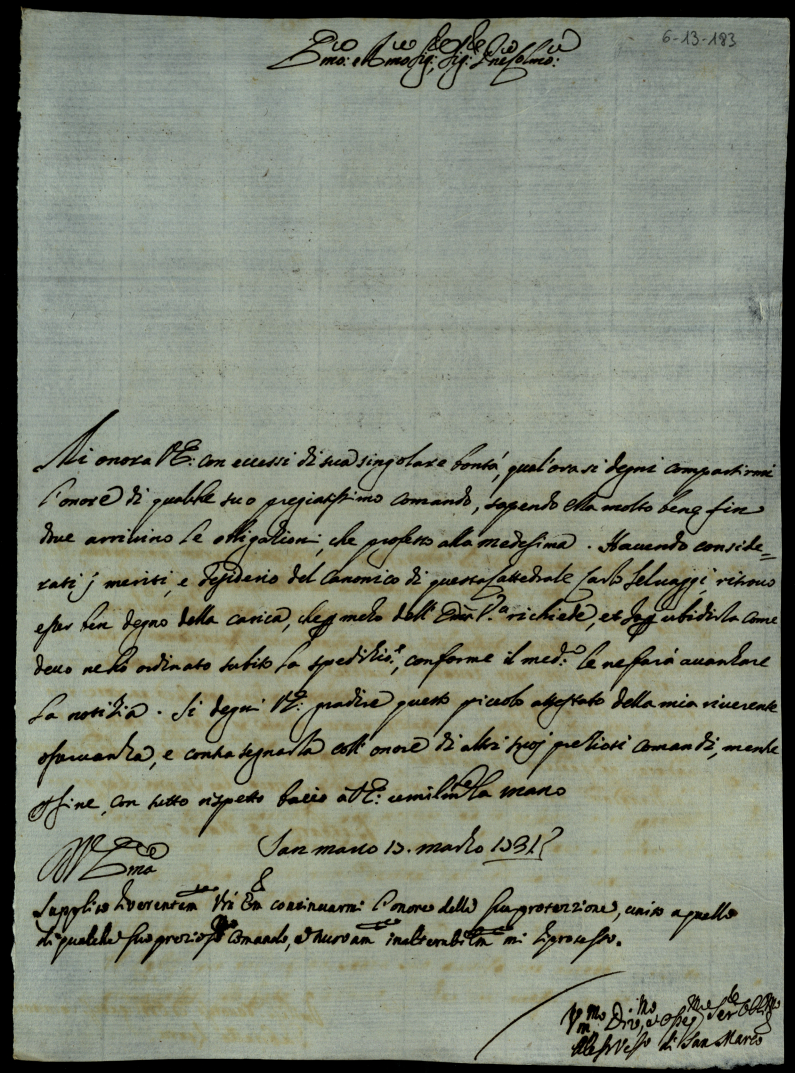 6-13-183
Emo: e Rmo Sig: Sig: Pne Colmo:
Mi onora V E: con eccessi di sua singolare bontà, qual'ora si degni compartirmi
l'onore di qualche suo pregiatissimo comando, sapendo ella molto bene fin
dove arrivino le obligationi, che professo alla medesima. Havendo conside=
rati i meriti, e desiderio del Canonico di questa Cattedrale Carlo Selvaggi, ritrovo
esser ben degno della carica, che p mezo dell' Emza V.a richiede, et p ubidirla come
devo ne hò ordinato subito la speditio.e, conforme il med.o le ne farà avanzare
la notizia. Si degni V E: gradire questo piccolo attestato della mia riverente
osservanza, e contrasegnarla coll' onore di altri suoj pretiosi comandi, mentre
con tutto rispetto bacio à V E: umilmte la mano
V Emza
San marco 13. marzo
Supplico riverentem Vra Em continuarmi l'onore della sua protezzione, unito a quello
di qualche suo prezioso comando, e nuovam inalterabilm mi riprotesto.
Vmo Divmo, et Osseqmo Ser Oblmo
Vesco di San Marco